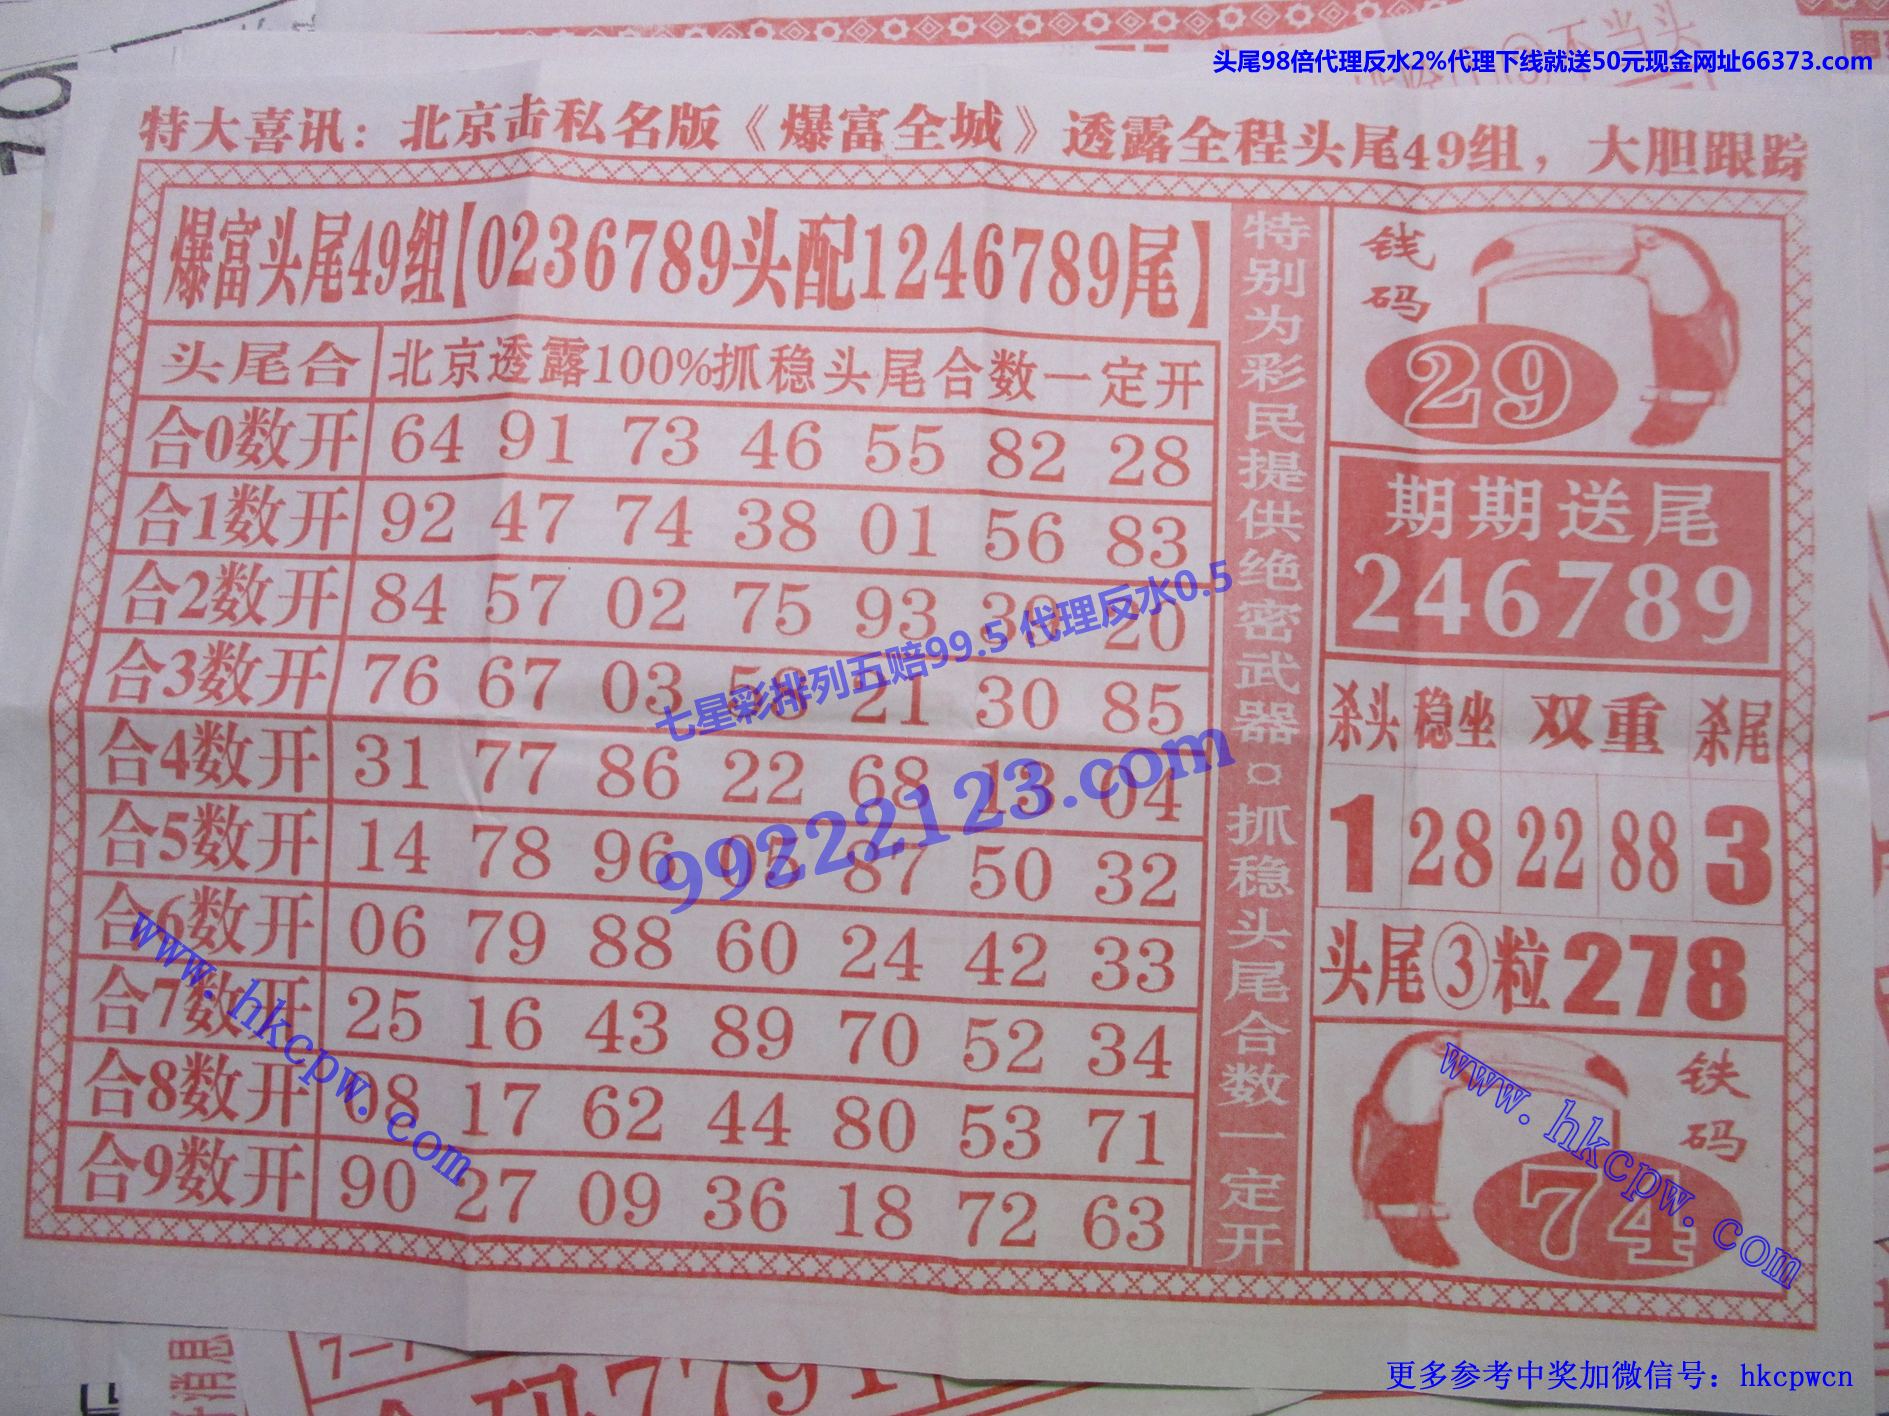 头尾98倍代理反水2%代理下线就送50元现金网址66373.com
特大喜讯：北京击私名版《爆富全城》透露全程头尾49组，大胆跟踪
爆富头尾49组【0236789头配1246789尾】
头尾合 北京透露100%抓稳头尾合数一定开
合0数开 64 91 73 46 55 82 28
合1数开 92 47 74 38 01 56 83
合2数开 84 57 02 75 93 39 20
合3数开 76 67 03 58 21 30 85
合4数开 31 77 86 22 68 13 04
合5数开 14 78 96 05 87 50 32
合6数开 06 79 88 60 24 42 33
合7数开 25 16 43 89 70 52 34
合8数开 08 17 62 44 80 53 71
合9数开 90 27 09 36 18 72 63
特别为彩民提供绝密武器¤抓稳头尾合数一定开
钱码
29
期期送尾
246789
杀头 稳坐 双重 杀尾
1 28 22 88 3
头尾③粒278
铁码
74
七星彩排列五赔99.5 代理反水0.5
99222123.com
www.hkcpw.com
www.hkcpw.com
消息
7791
更多参考中奖加微信号：hkcpwcn